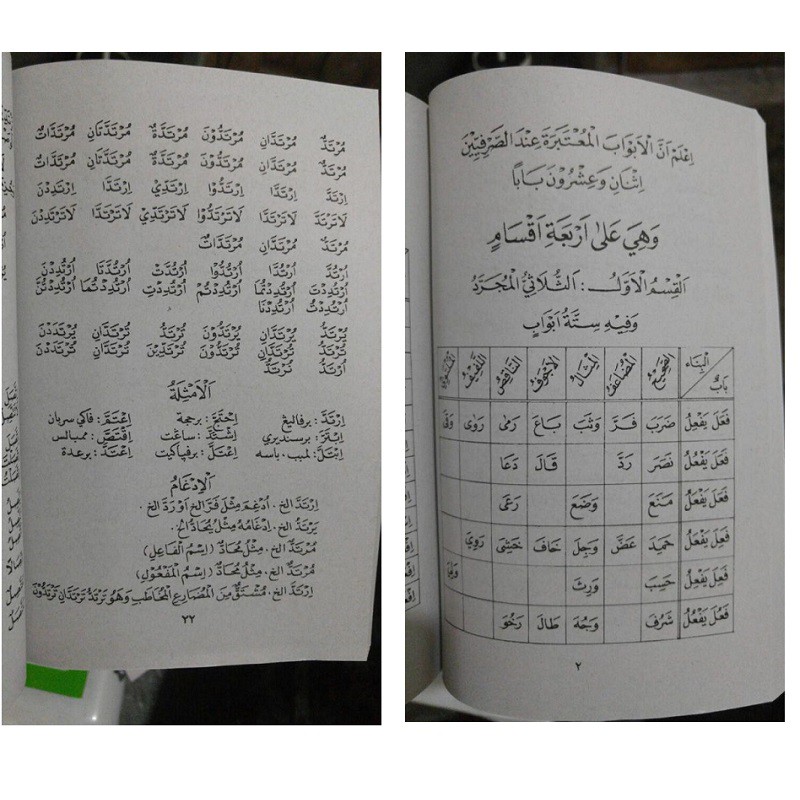 مُرْتَدٌّ مُرْتَدَّانِ مُرْتَدُّوْنَ مُرْتَدَّةٌ مُرْتَدَّتَانِ مُرْتَدَّاتٌ
مُرْتَدٌّ مُرْتَدَّانِ مُرْتَدُّوْنَ مُرْتَدَّةٌ مُرْتَدَّتَانِ مُرْتَدَّاتٌ
اِرْتَدَّ اِرْتَدَّا اِرْتَدُّوْا اِرْتَدِّيْ اِرْتَدَّا اِرْتَدِدْنَ
لَاتَرْتَدَّ لَاتَرْتَدَّا لَاتَرْتَدُّوْا لَاتَرْتَدِّيْ لَاتَرْتَدَّا لَاتَرْتَدِدْنَ
مُرْتَدٌّ مُرْتَدَّانِ مُرْتَدَّاتٌ
اُرْتُدَّ اُرْتُدَّا اُرْتُدُّوْا اُرْتُدَّتْ اُرْتُدَّتَا اُرْتُدِدْنَ
اُرْتُدِدْتَ اُرْتُدِدْتُمَا اُرْتُدِدْتُمْ اُرْتُدِدْتِ اُرْتُدِدْتُمَا اُرْتُدِدْتُنَّ
اُرْتُدِدْتُ اُرْتُدِدْنَا
يُرْتَدُّ يُرْتَدَّانِ يُرْتَدُّوْنَ تُرْتَدُّ تُرْتَدَّانِ يُرْتَدَدْنَ
تُرْتَدُّ تُرْتَدَّانِ تُرْتَدُّوْنَ تُرْتَدِّيْنَ تُرْتَدَّانِ تُرْتَدَدْنَ
اُرْتَدُّ نُرْتَدُّ
اَلْاَمْثِلَةُ
اِرْتَدَّ : برفاليڠ اِحْتَجَّ : برحجة اِغْتَمَّ : فاكي سربان
اِبْتَزَّ : برسنديري اِشْتَدَّ : ساڠت اِقْتَصَّ : ممبالس
اِبْتَلَّ : لمبب، باسه اِعْتَلَّ : برفپاكيت اِعْتَدَّ : برعدة
اَلْاِدْغَامُ
اِرْتَدَّ الخ . اُدْغِمَ مِثْلَ فَرَّ الخ اَوْ رَدَّ الخ .
يَرْتَدُّ الخ . اِدْغَامُهُ مِثْلُ يُحَادُّ الخ .
مُرْتَدٌّ الخ . مِثْلُ مُحَادٌّ (اِسْمُ الْفَاعِلِ)
مُرْتَدٌّ الخ . مِثْلُ مُحَادٌّ (اِسْمُ الْمَفْعُوْلِ)
اِرْتَدَّ الخ . مُشْتَقٌّ مِنَ الْمُضَارِعِ الْمُخَاطَبِ وَهُوَ تَرْتَدُّ تَرْتَدَّانِ تَرْتَدُّوْنَ
٢٢
اِعْلَمْ اَنَّ الْاَبْوَابَ الْمُعْتَبَرَةَ عِنْدَ الصَّرْفِيِّيْنَ
اِثْنَانِ وَعِشْرُوْنَ بَابًا
وَهِيَ عَلٰى اَرْبَعَةِ اَقْسَامٍ
اَلْقِسْمُ الْاَوَّلُ : اَلثُّلَاثِيُّ الْمُجَرَّدُ
وَفِيْهِ سِتَّةُ اَبْوَابٍ
اَلْبِنَاء بَابُ الصَّحِيْحُ الْمُضَاعَفُ الْمِثَالُ الْاَجْوَفُ النَّاقِصُ اللَّفِيْفُ
فَعَلَ يَفْعِلُ ضَرَبَ فَرَّ وَثَبَ بَاعَ رَمٰى رَوٰى وَقٰى
فَعَلَ يَفْعُلُ نَصَرَ رَدَّ قَالَ دَعَا
فَعَلَ يَفْعَلُ مَنَعَ وَضَعَ رَعٰى
فَعِلَ يَفْعَلُ حَمِدَ عَضَّ وَجِلَ خَافَ خَشِيَ رَوِيَ
فَعِلَ يَفْعِلُ حَسِبَ وَرِثَ وَلِيَ
فَعُلَ يَفْعُلُ شَرُفَ وَجُهَ طَالَ رَخُوَ
٢